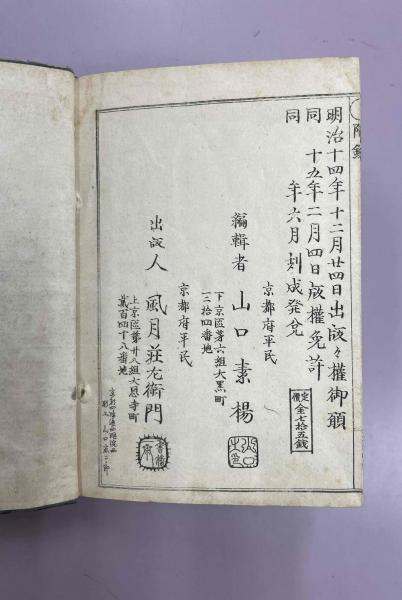 附録
明治十四年十二月廿四日出版々權御願
同　十五年二月四日版權免許
同　年六月刻成發兌
定價金七拾五銭
京都府平民
編輯者　山口素楊
下京區第六組大黒町
二拾四番地
山口之印
京都府平民
出版人　風月荘左衛門
上京區第廿八組大恩寺町
貳百四十八番地